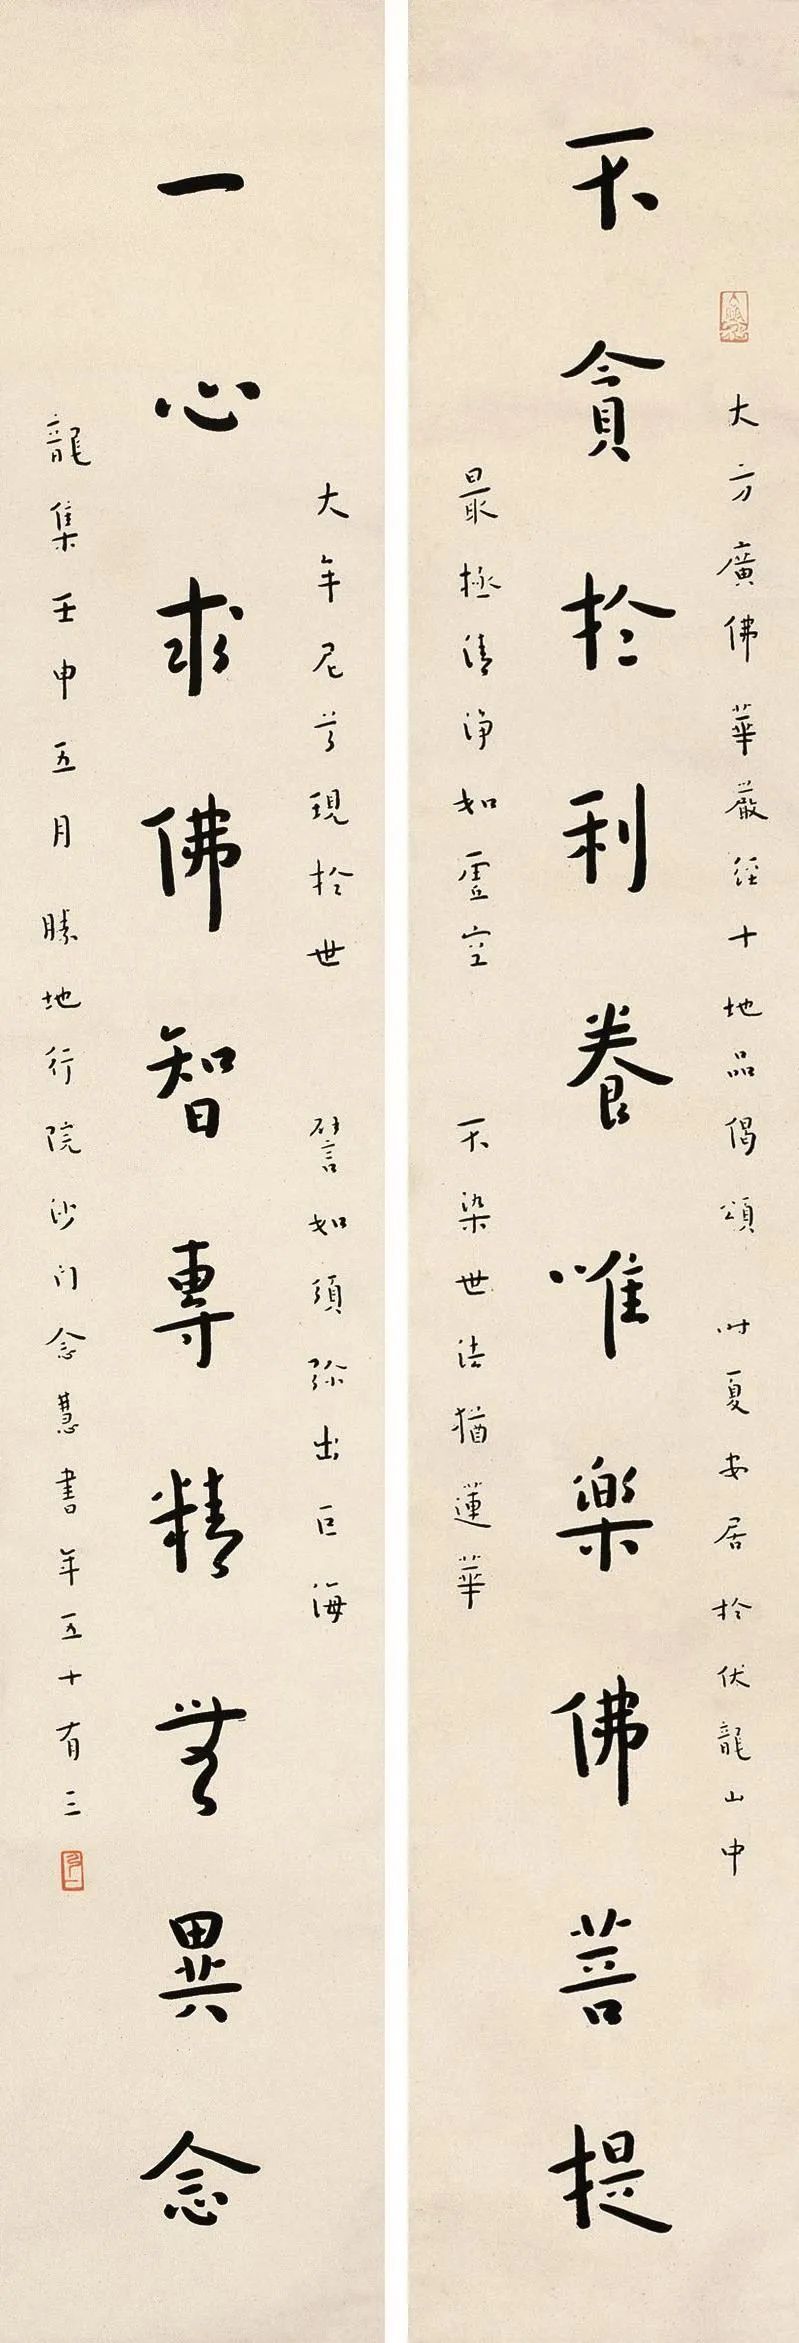 大方廣佛華嚴經十地品偈頌 時夏安居於伏龍山中
不貪於利養唯樂佛菩提
最極清淨如虛空 不染世法猶蓮華
大牟尼尊現於世 譬如須弥出巨海
一心求佛智專精無異念
龍集壬申五月勝地行院沙門念慧書年五十有三